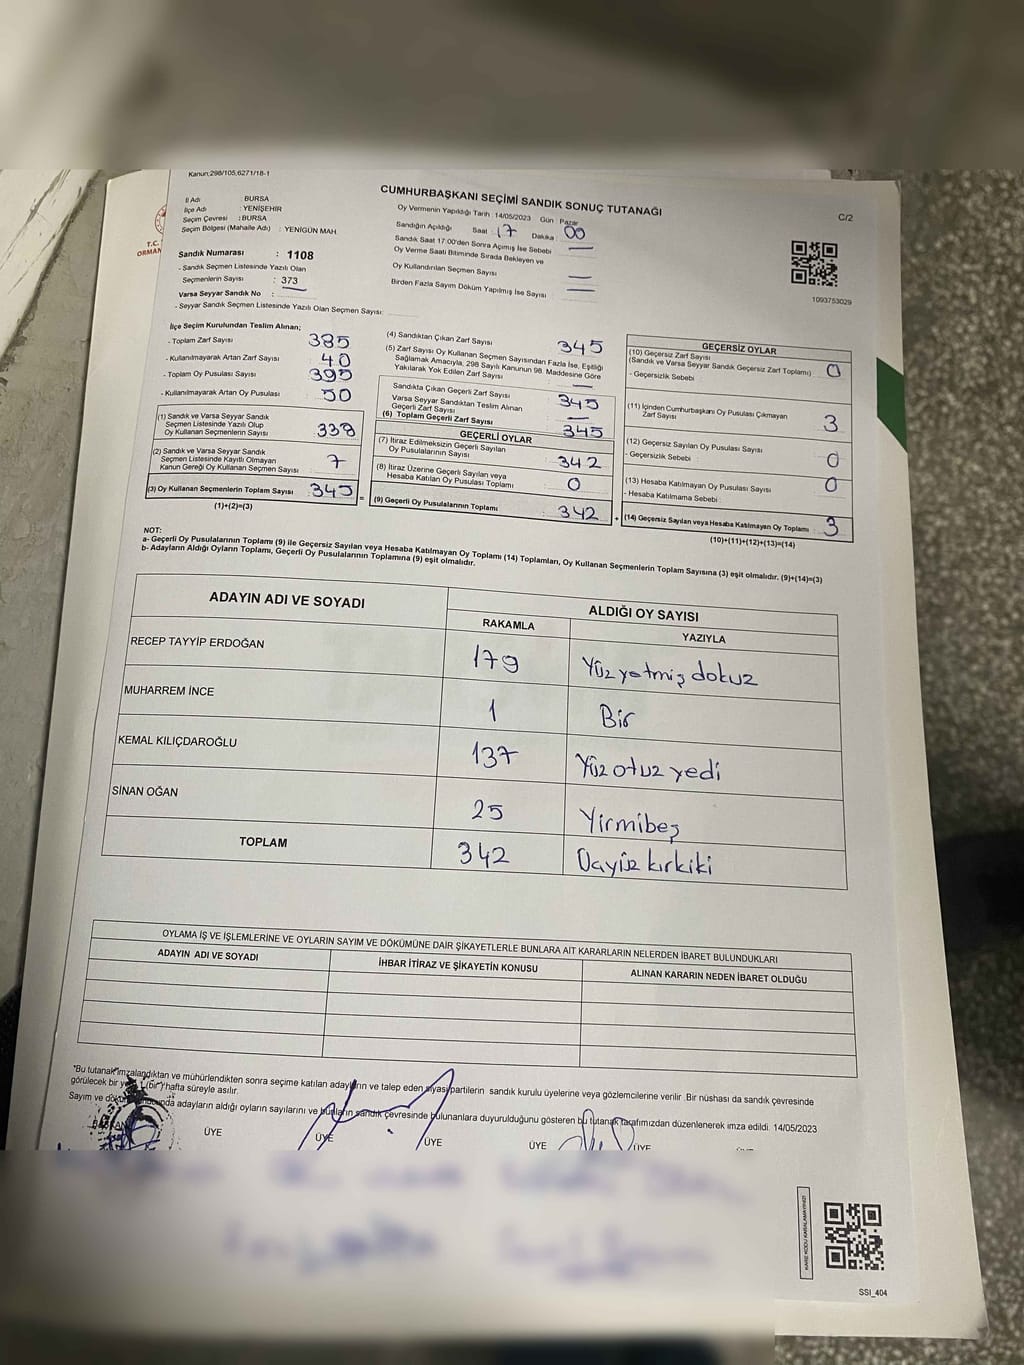 Kanun;298/105,6271/18-1
CUMHURBAŞKANI SEÇİMİ SANDIK SONUÇ TUTANAĞI
C/2
İl Adı : BURSA
İlçe Adı : YENİŞEHİR
Seçim Çevresi : BURSA
Seçim Bölgesi (Mahalle Adı) : YENİGÜN MAH
T.C.
ORMAN
Sandık Numarası : 1108
- Sandık Seçmen Listesinde Yazılı Olan
Seçmenlerin Sayısı : 373
Varsa Seyyar Sandık No :
- Seyyar Sandık Seçmen Listesinde Yazılı Olan Seçmen Sayısı:
Oy Vermenin Yapıldığı Tarih : 14/05/2023 Gün : Pazar
Sandığın Açıldığı Saat : 17 Dakika : 00
Sandık Saat 17:00'den Sonra Açımış İse Sebebi
Oy Verme Saati Bitiminde Sırada Bekleyen ve
Oy Kullandırılan Seçmen Sayısı
Birden Fazla Sayım Döküm Yapılmış İse Sayısı
1093753029
İlçe Seçim Kurulundan Teslim Alınan;
- Toplam Zarf Sayısı 385
- Kullanılmayarak Artan Zarf Sayısı 40
- Toplam Oy Pusulası Sayısı 395
- Kullanılmayarak Artan Oy Pusulası 50
(1) Sandık ve Varsa Seyyar Sandık
Seçmen Listesinde Yazılı Olup
Oy Kullanan Seçmenlerin Sayısı 338
(2) Sandık ve Varsa Seyyar Sandık
Seçmen Listesinde Kayıtlı Olmayan
Kanun Gereği Oy Kullanan Seçmen Sayısı 7
(3) Oy Kullanan Seçmenlerin Toplam Sayısı 345
(1)+(2)=(3)
(4) Sandıktan Çıkan Zarf Sayısı 345
(5) Zarf Sayısı Oy Kullanan Seçmen Sayısından Fazla İse, Eşitliği
Sağlamak Amacıyla, 298 Sayılı Kanunun 98. Maddesine Göre
Yakılarak Yok Edilen Zarf Sayısı
Sandıkta Çıkan Geçerli Zarf Sayısı 345
Varsa Seyyar Sandıktan Teslim Alınan
Geçerli Zarf Sayısı
(6) Toplam Geçerli Zarf Sayısı 345
GEÇERLİ OYLAR
(7) İtiraz Edilmeksizin Geçerli Sayılan
Oy Pusulalarının Sayısı 342
(8) İtiraz Üzerine Geçerli Sayılan veya
Hesaba Katılan Oy Pusulası Toplamı 0
= (9) Geçerli Oy Pusulalarının Toplamı 342
GEÇERSİZ OYLAR
(10) Geçersiz Zarf Sayısı
(Sandık ve Varsa Seyyar Sandık Geçersiz Zarf Toplamı) 0
- Geçersizlik Sebebi
(11) İçinden Cumhurbaşkanı Oy Pusulası Çıkmayan
Zarf Sayısı 3
(12) Geçersiz Sayılan Oy Pusulası Sayısı 0
- Geçersizlik Sebebi
(13) Hesaba Katılmayan Oy Pusulası Sayısı 0
- Hesaba Katılmama Sebebi
+ (14) Geçersiz Sayılan veya Hesaba Katılmayan Oy Toplamı 3
(10)+(11)+(12)+(13)=(14)
NOT:
a- Geçerli Oy Pusulalarının Toplamı (9) ile Geçersiz Sayılan veya Hesaba Katılmayan Oy Toplamı (14) Toplamları, Oy Kullanan Seçmenlerin Toplam Sayısına (3) eşit olmalıdır. (9)+(14)=(3)
b- Adayların Aldığı Oyların Toplamı, Geçerli Oy Pusulalarının Toplamına (9) eşit olmalıdır.
ADAYIN ADI VE SOYADI
ALDIĞI OY SAYISI
RAKAMLA YAZIYLA
RECEP TAYYİP ERDOĞAN 179 Yüz yetmiş dokuz
MUHARREM İNCE 1 Bir
KEMAL KILIÇDAROĞLU 137 Yüz otuz yedi
SİNAN OĞAN 25 Yirmibeş
TOPLAM 342 kırkiki
OYLAMA İŞ VE İŞLEMLERİNE VE OYLARIN SAYIM VE DÖKÜMÜNE DAİR ŞİKAYETLERLE BUNLARA AİT KARARLARIN NELERDEN İBARET BULUNDUKLARI
ADAYIN ADI VE SOYADI İHBAR İTİRAZ VE ŞİKAYETİN KONUSU ALINAN KARARIN NEDEN İBARET OLDUĞU
"Bu tutanak imzalandıktan ve mühürlendikten sonra seçime katılan adayların ve talep eden siyasi partilerin sandık kurulu üyelerine veya gözlemcilerine verilir. Bir nüshası da sandık çevresinde
görülecek bir yere 1 (bir) hafta süreyle asılır.
Sayım ve döküm adayların aldığı oyların sayılarını ve bunların sandık çevresinde bulunanlara duyurulduğunu gösteren bu tutanak tarafımızdan düzenlenerek imza edildi. 14/05/2023
BAŞKAN ÜYE ÜYE ÜYE ÜYE ÜYE
KARE KODU KARALAMAYINIZ!
SSI_404